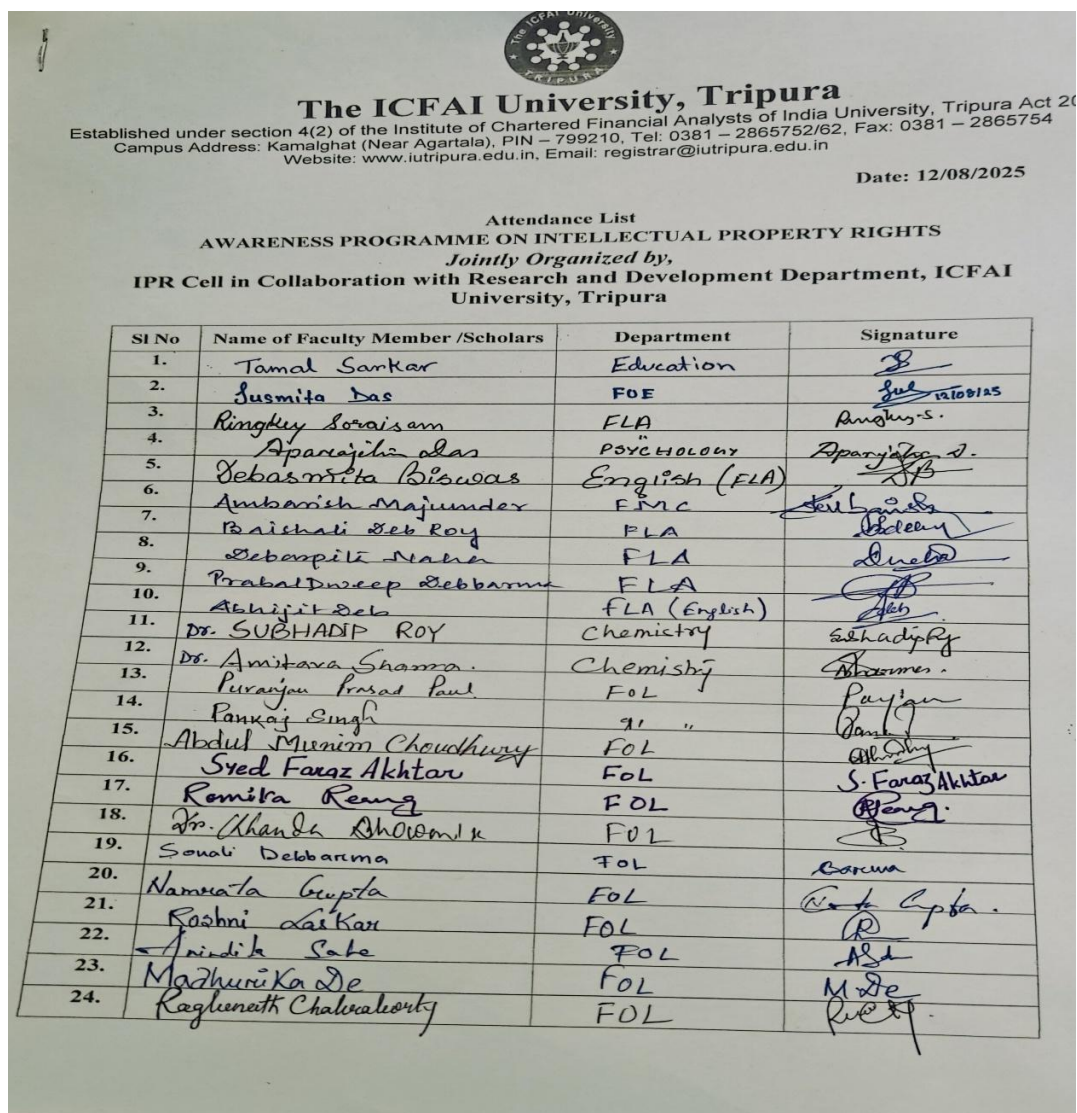 The ICFAI University
TRIPURA
The ICFAI University, Tripura
Established under section 4(2) of the Institute of Chartered Financial Analysts of India University, Tripura Act 20
Campus Address: Kamalghat (Near Agartala), PIN – 799210, Tel: 0381 – 2865752/62, Fax: 0381 – 2865754
Website: www.iutripura.edu.in, Email: registrar@iutripura.edu.in
Date: 12/08/2025
Attendance List
AWARENESS PROGRAMME ON INTELLECTUAL PROPERTY RIGHTS
Jointly Organized by,
IPR Cell in Collaboration with Research and Development Department, ICFAI
University, Tripura
Sl No Name of Faculty Member /Scholars Department Signature
1. Tamal Sarkar Education
2. Susmita Das FOE 12/08/25
3. Ringkey Soraisam FLA Ringkey S.
4. Aparajita Das PSYCHOLOGY Aparajita D.
5. Debasmita Biswas English (FLA) DB
6. Ambarish Majumder FMC
7. Baishali Deb Roy FLA
8. Naha FLA
9. Prabal Dweep Debbarma FLA
10. Abhijit Deb FLA (English)
11. Dr. SUBHADIP ROY Chemistry Subhadip Roy
12. Dr. Amitava Sharma. Chemistry
13. Puranjan Prasad Paul FOL
14. Pankaj Singh " "
15. Abdul Munim Choudhury FOL
16. Syed Faraz Akhtar FOL S. Faraz Akhtar
17. Romika Reang FOL Reang.
18. Dr. Chanda Bhowmik FOL
19. Sonali Debbarma FOL Barma
20. Namrata Gupta FOL Gupta.
21. Roshni Laskar FOL R
22. Anindita Saha FOL
23. Madhurika De FOL M De
24. Raghunath Chakraborty FOL